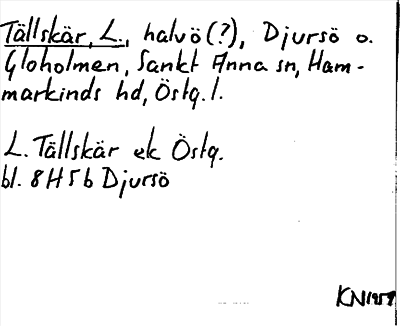 Tällskär, L., halvö (?), Djursö o.
Gloholmen, Sankt Anna sn, Ham-
markinds hd, Östg. l.
L. Tällskär ek Östg.
bl. 8H5b Djursö
KN1957